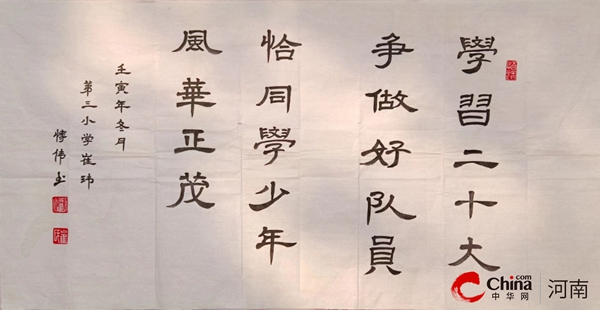 學習二十大
争做好队員
恰同學少年
風華正茂
壬寅年冬月
第三小学崔玮
China.com
中华网
河南